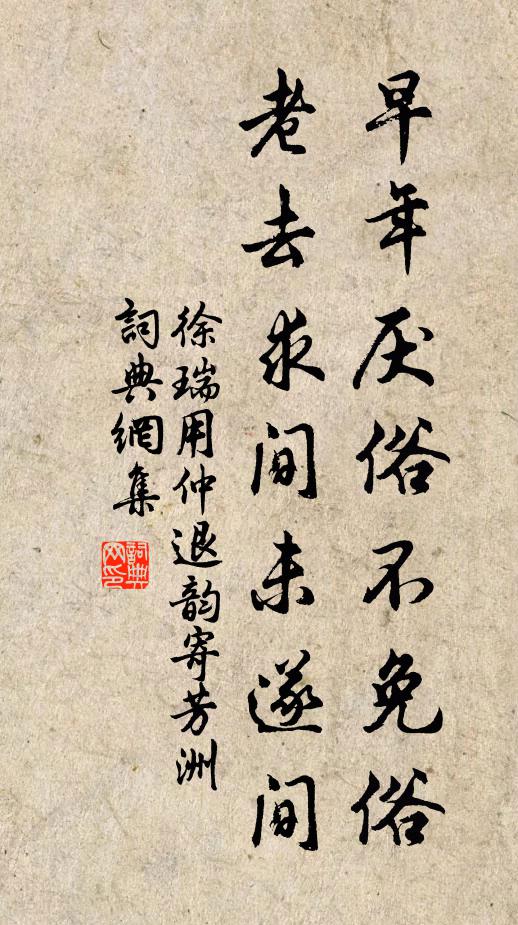 早年厌俗不免俗
老去求间未遂间
徐瑞用仲退韵寄芳洲
詞典網集
詞典网印